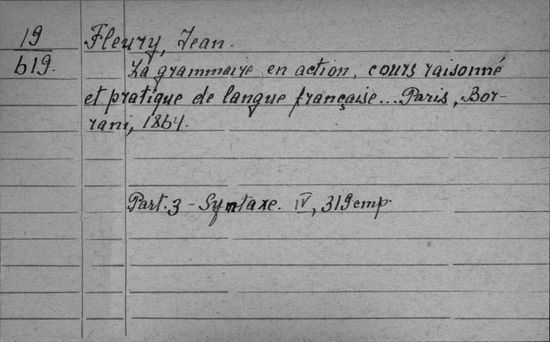 19
619.
Fleury, Jean.
La grammaire en action, cours raisonné
et pratique de langue française... Paris, Bor-
rani, 1864.
Part. 3 - Syntaxe. IV, 319 стр